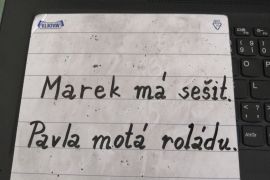 Marek má sešit.
Pavla motá roládu.